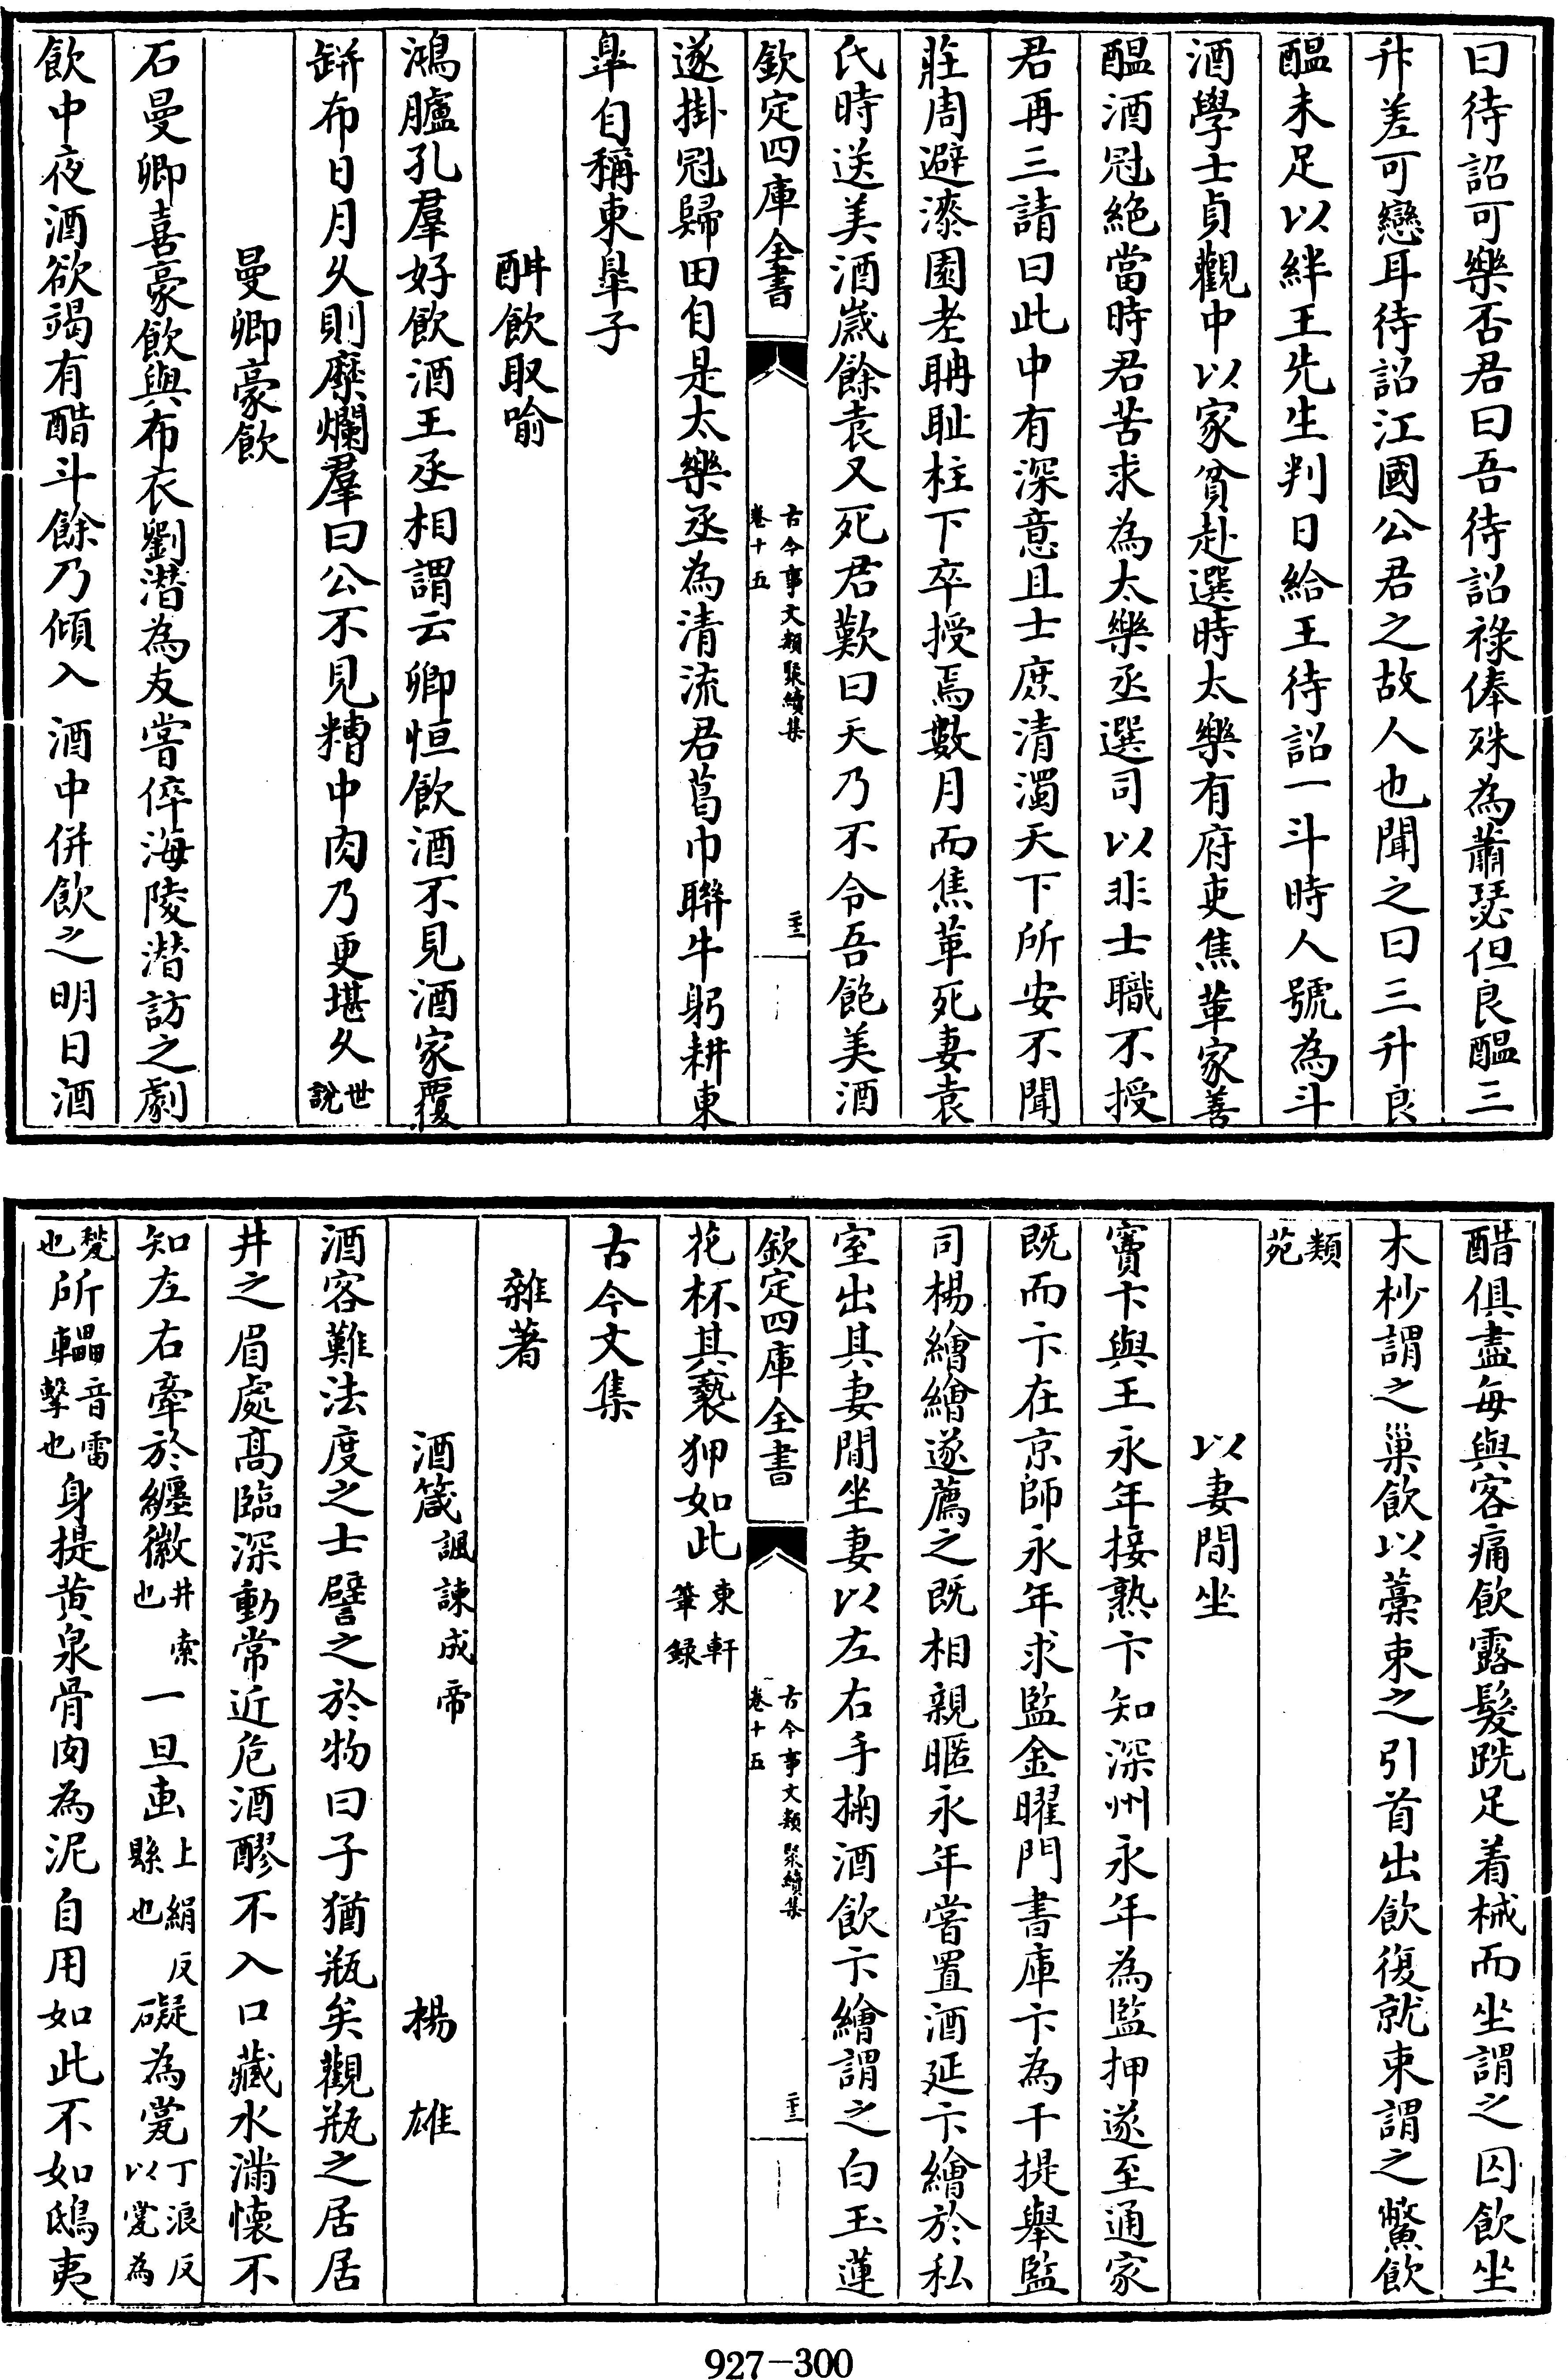 曰待詔可樂否君曰吾待詔祿俸殊為蕭瑟但良醖三
升差可戀耳待詔江國公君之故人也聞之曰三升良
醖未足以絆王先生判日給王待詔一斗時人號為斗
酒學士貞觀中以家貧赴選時太樂有府吏焦革家善
醖酒冠絶當時君苦求為太樂丞選司以非士職不授
君再三請曰此中有深意且士庶清濁天下所安不聞
莊周避漆園老聃耻柱下卒授焉數月而焦革死妻袁
氏時送美酒嵗餘袁又死君歎曰天乃不令吾飽美酒
欽定四庫全書
古今事文類聚續集
卷十五
二十三
遂掛冠歸田自是太樂丞為清流君葛巾聯牛躬耕東
臯自稱東臯子
酣飲取喻
鴻臚孔羣好飲酒王丞相謂云卿恒飲酒不見酒家覆
缾布日月久則糜爛羣曰公不見糟中肉乃更堪久世說
曼卿豪飲
石曼卿喜豪飲與布衣劉潜為友嘗倅海陵潜訪之劇
飲中夜酒欲竭有醋斗餘乃傾入酒中併飲之明日酒
醋俱盡每與客痛飲露髮跣足着械而坐謂之囚飲坐
木杪謂之巢飲以藁束之引首出飲復就束謂之鱉飲
類苑
以妻間坐
竇卞與王永年接熟卞知深州永年為監押遂至通家
既而卞在京師永年求監金曜門書庫卞為干提舉監
司楊繪繪遂薦之既相親暱永年嘗置酒延卞繪於私
室出其妻間坐妻以左右手掬酒飲卞繪謂之白玉蓮
欽定四庫全書
古今事文類聚續集
卷十五
二十三
花杯其褻狎如此東軒筆録
古今文集
雜著
酒箴諷諫成帝 楊雄
酒客難法度之士譬之於物曰子猶瓶矣觀瓶之居居
井之眉處高臨深動常近危酒醪不入口藏水滿懷不
知左右牽於纆徽井索也一旦叀上絹反縣也礙為瓽丁浪反以瓽為
甃也所轠音雷擊也身提黄泉骨肉為泥自用如此不如鴟夷
927-300